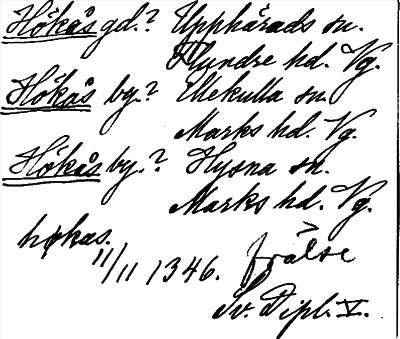 Hökås gd.? Upphärads sn.
Flundre hd. Vg.
Hökås by.? Mekulla sn.
Marks hd. Vg.
Hökås by.? Hyssna sn.
Marks hd. Vg.
høkas.
11/11 1346. frälse
Sv. Dipl. V.